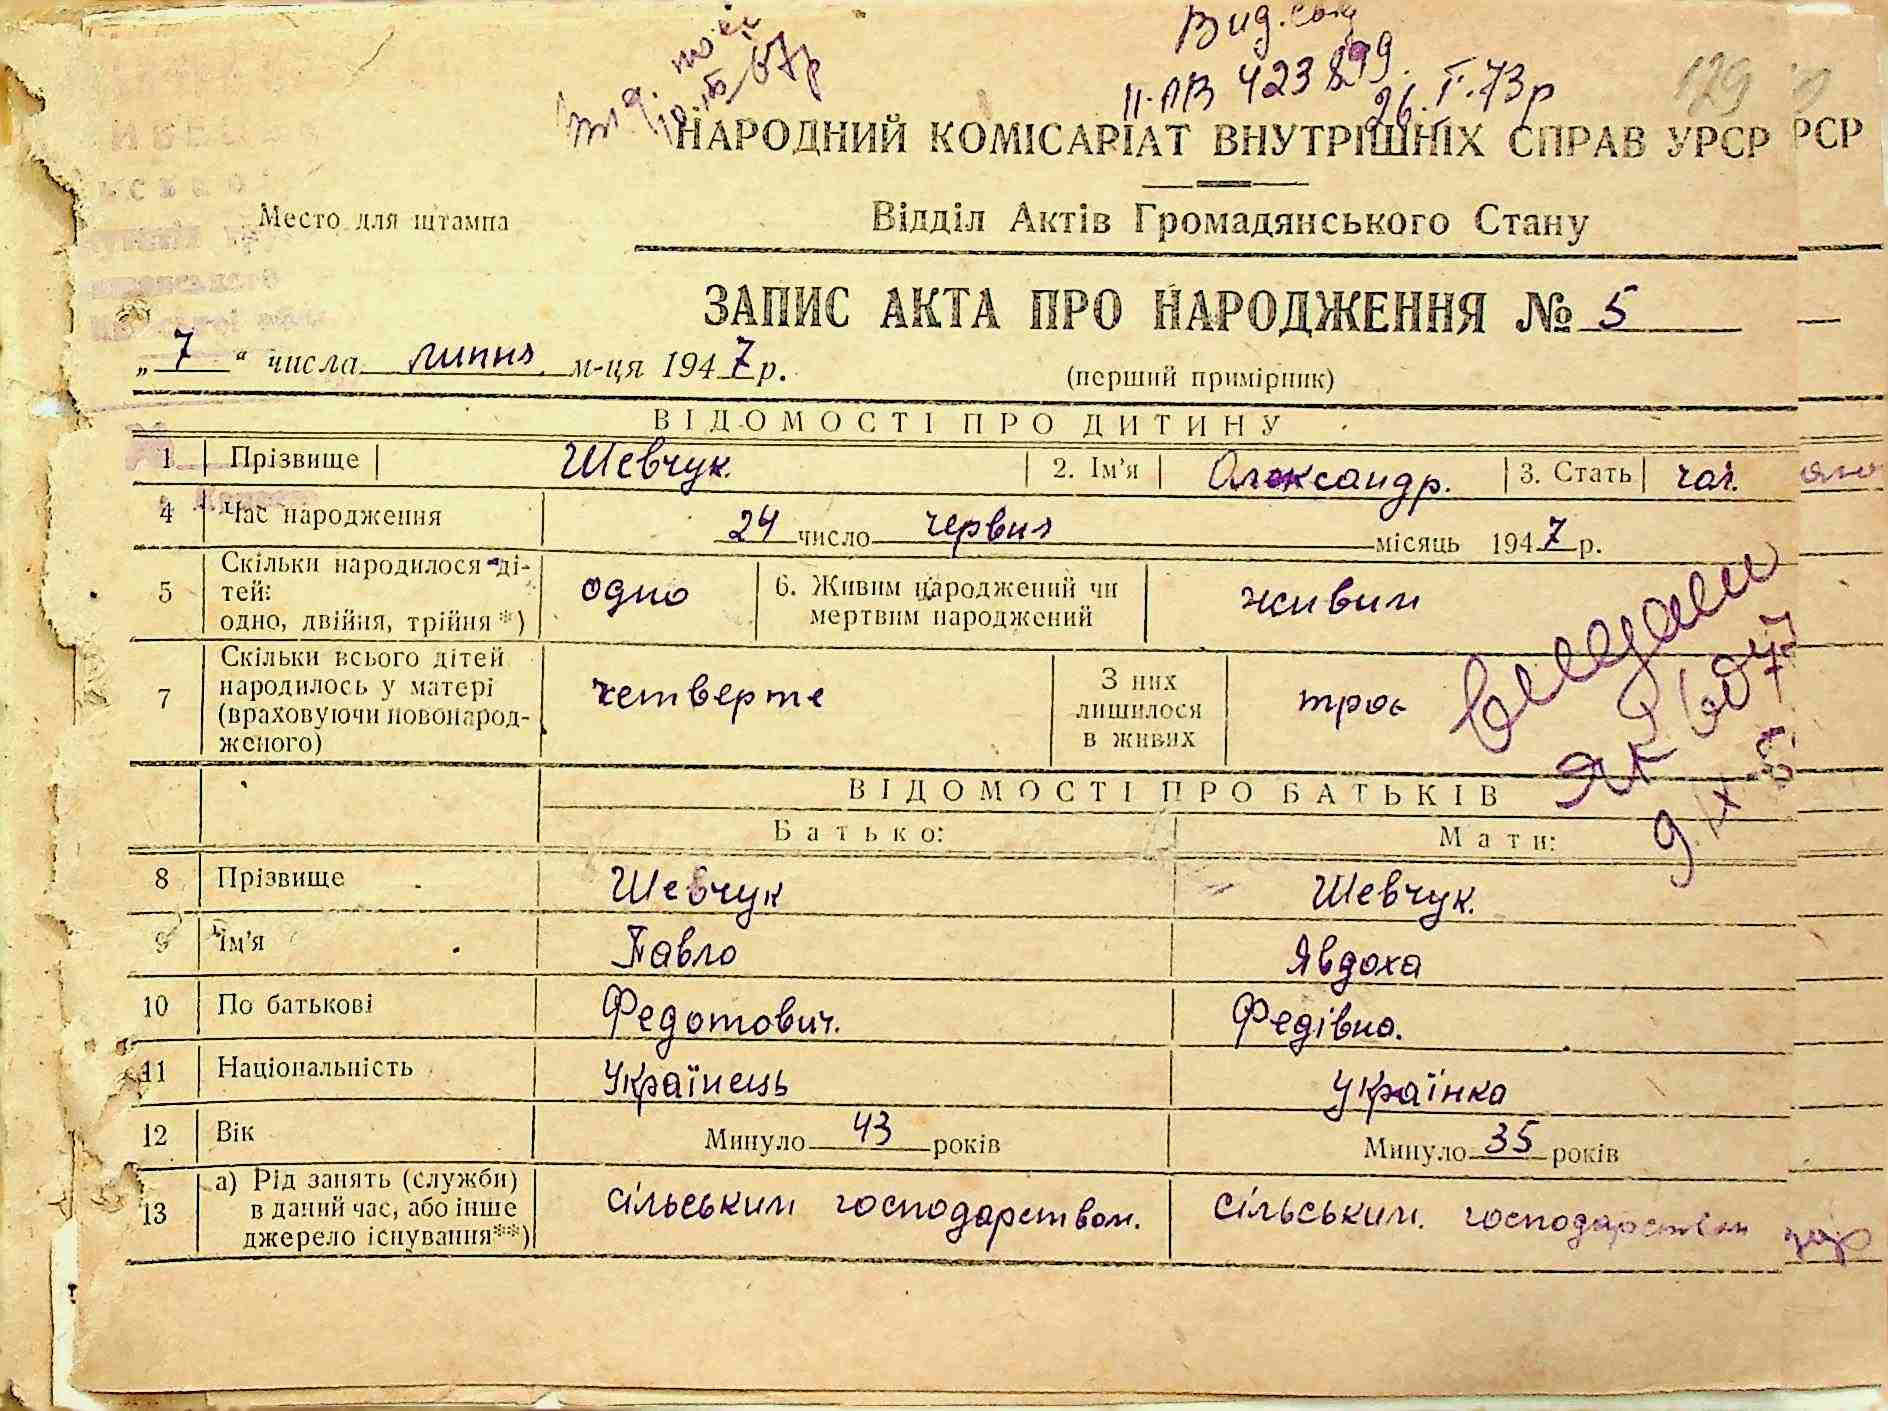 Вид.
II-АВ 423899.
26.I.73р
129
НАРОДНИЙ КОМІСАРІАТ ВНУТРІШНІХ СПРАВ УРСР РСР
Место для штампа
Відділ Актів Громадянського Стану
ЗАПИС АКТА ПРО НАРОДЖЕННЯ № 5
„7“ числа липня м-ця 1947 р.
(перший примірник)
ВІДОМОСТІ ПРО ДИТИНУ
1 Прізвище Шевчук. 2. Ім'я Олександр. 3. Стать чол.
4 Час народження 24 число червня місяць 1947 р.
5 Скільки народилося ді-
тей:
одно, двійня, трійня*) одно 6. Живим народжений чи
мертвим народжений живим
7 Скільки всього дітей
народилось у матері
(враховуючи новонарод-
женого) четверте З них
лишилося
в живих троє
ВІДОМОСТІ ПРО БАТЬКІВ
Батько: Мати:
8 Прізвище Шевчук Шевчук.
9 Ім'я Павло Явдоха
10 По батькові Федотович. Федівна.
11 Національність Українець Українка
12 Вік Минуло 43 років Минуло 35 років
13 а) Рід занять (служби)
в даний час, або інше
джерело існування**) сільським господарством. сільським. господарством